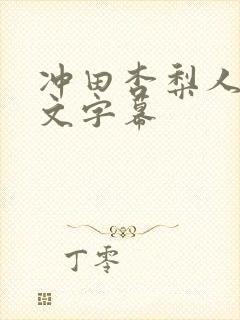 冲田杏梨人
文字幕
丁零